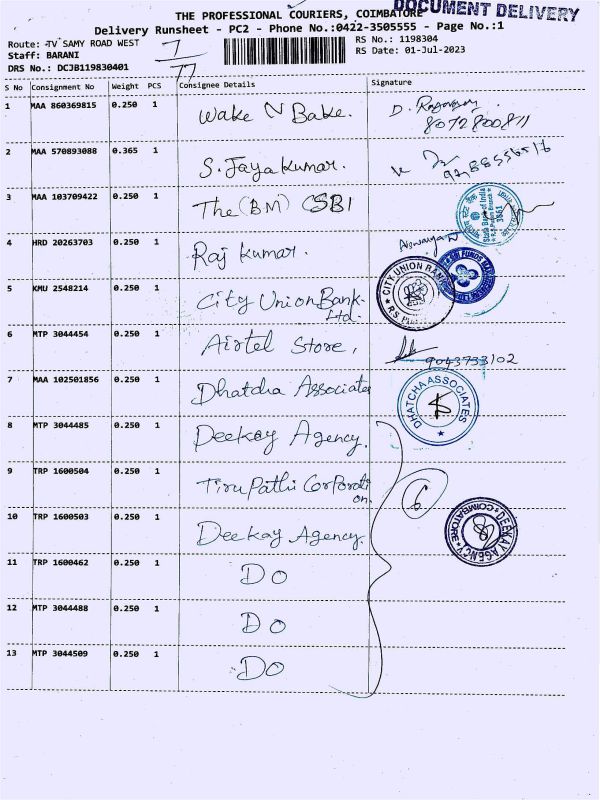 THE PROFESSIONAL COURIERS, COIMBATORE
DOCUMENT DELIVERY
Delivery Runsheet - PC2 - Phone No.:0422-3505555 - Page No.:1
Route: TV SAMY ROAD WEST
Staff: BARANI
DRS No.: DCJB119830401
7/77
RS No.: 1198304
RS Date: 01-Jul-2023
S No Consignment No Weight PCS Consignee Details Signature
1 MAA 860369815 0.250 1 Wake N Bake. D.
8072800811
2 MAA 570893088 0.365 1 S. Jayakumar.
3 MAA 103709422 0.250 1 The (BM) SBI
State Bank of India
4 HRD 20263703 0.250 1 Raj Kumar.
5 KMU 2548214 0.250 1 City Union Bank Ltd.
CITY UNION BANK
6 MTP 3044454 0.250 1 Airtel Store, 9043733102
7 MAA 102501856 0.250 1 Dhatcha Associates
DHATCHA ASSOCIATES
8 MTP 3044485 0.250 1 Deekay Agency.
9 TRP 1600504 0.250 1 Tirupathi Corporation. 6
10 TRP 1600503 0.250 1 Deekay Agency.
DEEKAY AGENCY COIMBATORE
11 TRP 1600462 0.250 1 Do
12 MTP 3044488 0.250 1 Do
13 MTP 3044509 0.250 1 Do